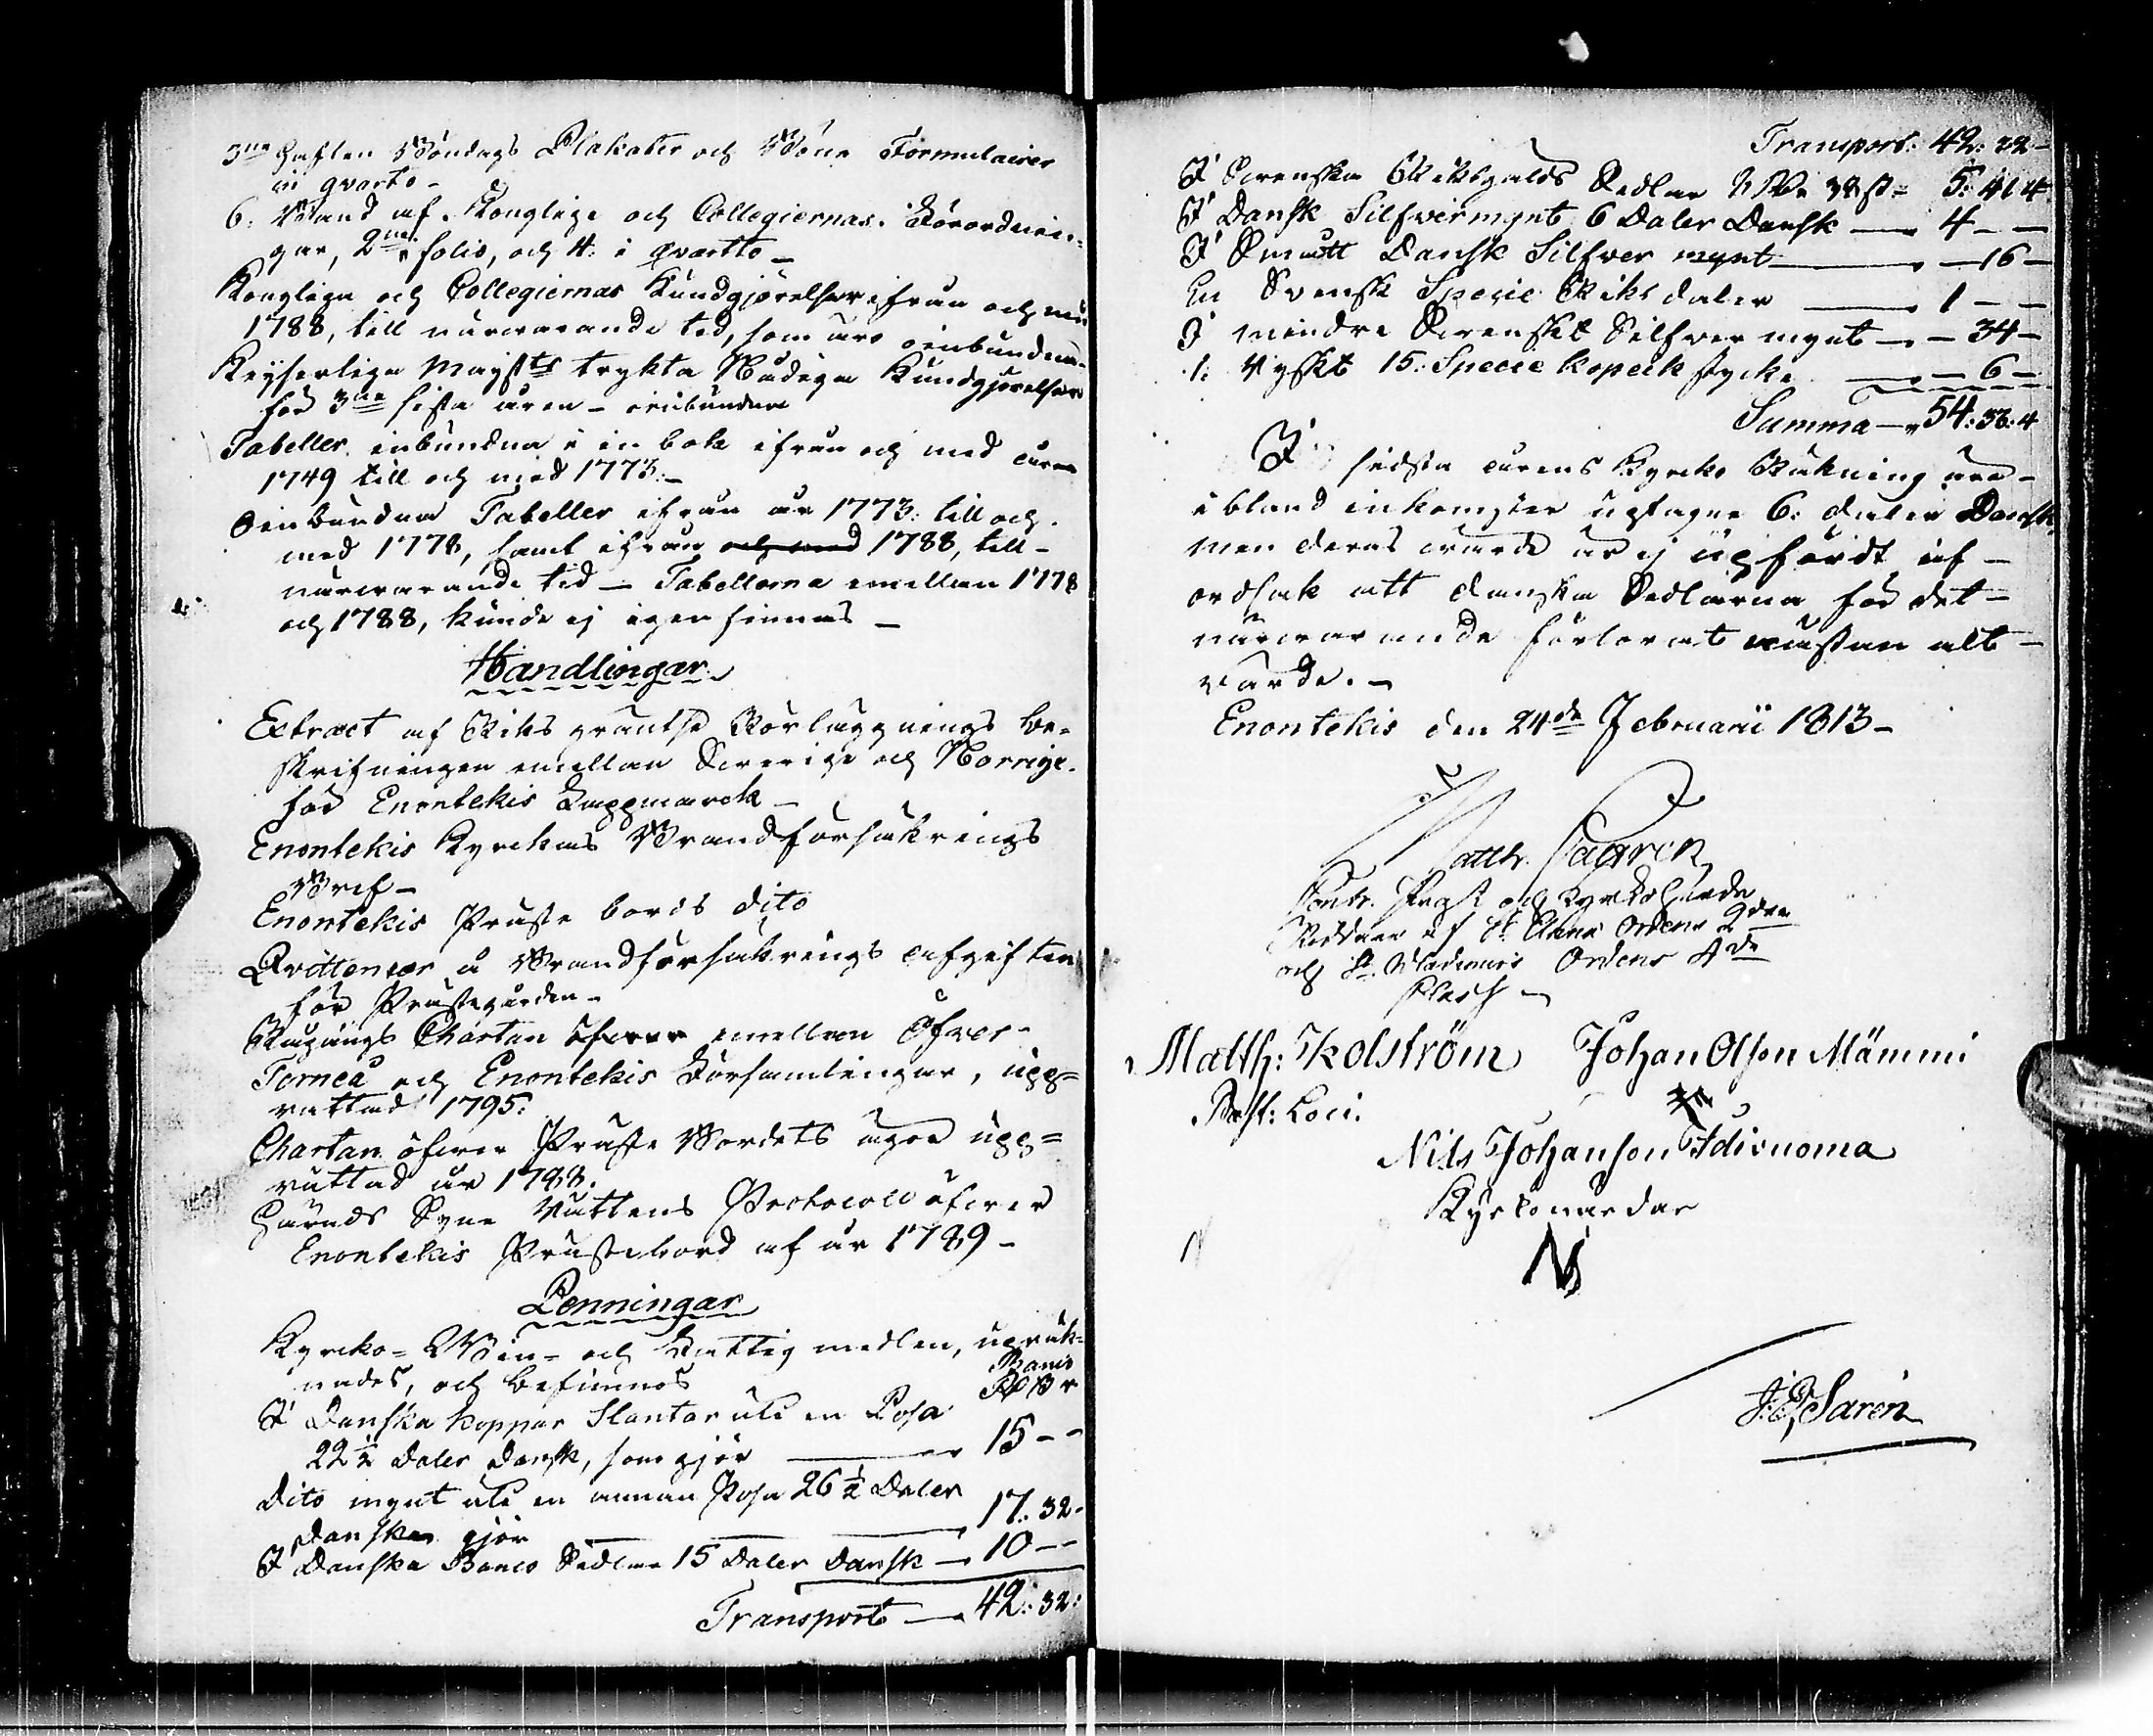 3ne Häften Böndags Plakater och Böne Formulairer
in qvarto –
6. Band af Konglige och Collegiernas Förordnin=
gar, 2ne folio, och 4. i qvartto –
Kongliga och Collegiernas Kundgjörelser ifrån och med
1788, till närwarande tid, som äro oinbundna –
Keyserliga Mayst:ts trykta Nådiga Kundgjörelser
för 3ne sista åren – oinbundna
Tabeller inbundna i en bok ifrån och med åren
1749 till och med 1773. –
Oinbundna Tabeller ifrån år 1773: till och
med 1778, samt ifrån och med 1788, till –
närwarande tid – Tabellerna emellan 1778
och 1788, kunde ej igenfinnas –
Handlingar
Extract af Riks gräntse Rörläggnings be=
skrifningen emellan Swerige och Norrige
för Enontekis Lappmarck –
Enontekis Kyrckas Brandförsäkrings
Bref –
Enontekis Präste bords dito
Qvittencer å Brandförsäkrings afgiften
för Prästegården –
Rågångs Chartan öfwer emellan Öfwer-
Torneå och Enontekis Församlingar, upp=
rättad 1795:
Chartan öfwer Präste Bordets ägor upp=
rättad år 1788.
Härads Syne Rättens Protocoll öfwer
Enontekis Prästebord af år 1789 –
Penningar
Kyrcko= Win= och Fattig medlen, upräk=
nades, och befinnes Banco
I Danska koppar Slantar uti en Posa Rd s r
22½ Daler Dansk, som gjör — 15 – –
Dito mynt uti en annan Posa 26½ Daler
Danska gjör — 17: 32 –
I Danska Banco Sedlar 15 Daler Dansk — 10 – –
Transport — 42: 32:
Transport: 42: 32 –
I Swenska Riksgälds Sedlar 5: 41 4
I Dansk Silfwermynt 6 Daler Dansk — 4 – –
I Smått Dansk Silfwer mynt — – 16 –
En Svensk Specie Riksdaler — 1 – –
I mindre Swenskt Silfwer mynt — – 34 –
1: Ryskt 15: Specie kopeck stycke — – 6 –
Summa — 54: 33: 4
I sidsta årens Kyrcko Räkning äro –
ibland inkomster uptagne 6: daler Dansk,
men deras wärde är ej upfördt af –
ordsak att danska Sedlarna för det –
närwarande förlorat nästan alt –
värde. –
Enontekis den 24de Februarii 1813 –
Matth.
Contr. Prost och Kyrkoherde
Riddare af St. Anna Ordens 2dra
och St. Wladimirs Ordens 4de
Class –
Matth: Kolström Johan Olsson Mämmi
Past: Loci.
Nils Johansson
Kyrkowärdar